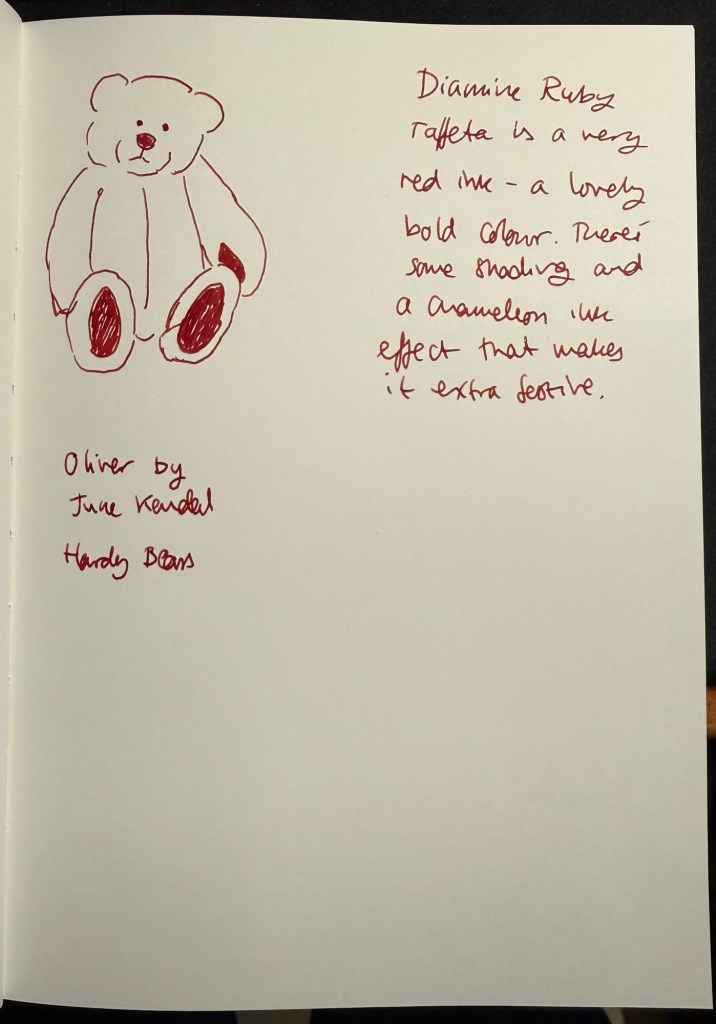 Diamine Ruby
Taffeta is a very
red ink - a lovely
bold colour. There's
some shading and
a chameleon ink
effect that makes
it extra festive.
Oliver by
June Kendal
Hardy Bears